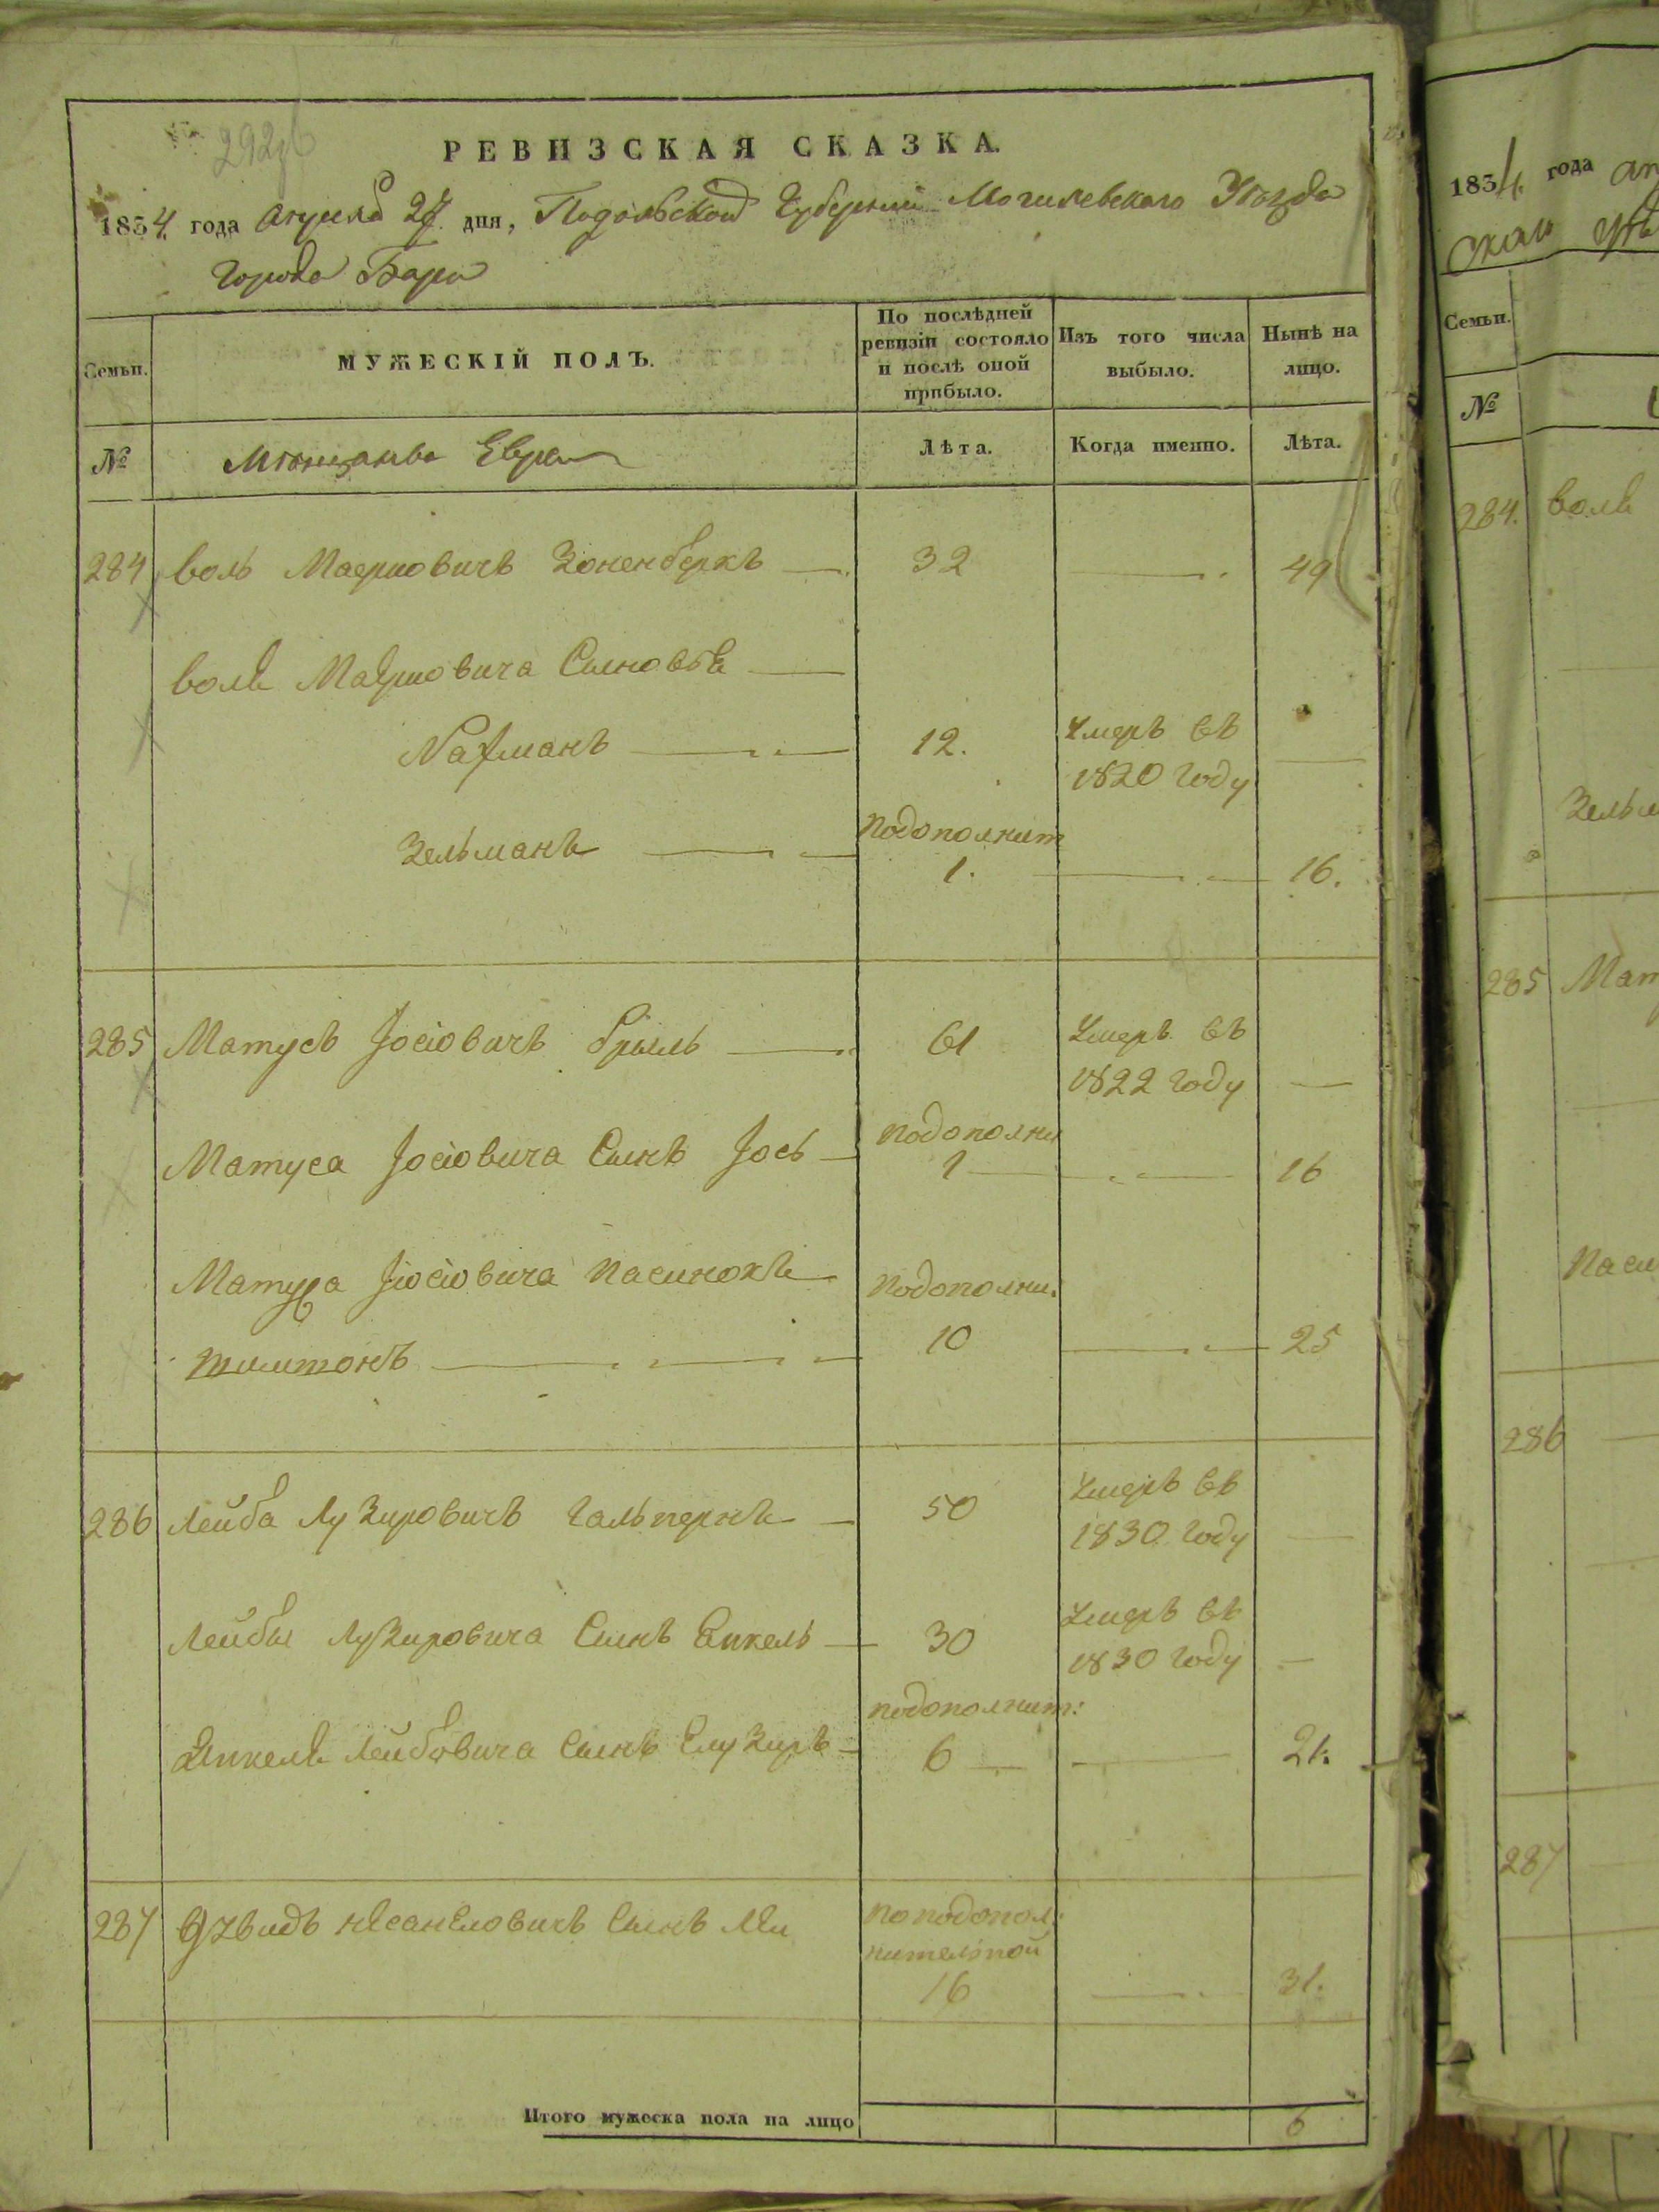 РЕВИЗСКАЯ СКАЗКА.
1834 года апреля 27 дня, Подольской Губернии Могилевского Уѣзда
Города Бара
Семьи.
МУЖЕСКІЙ ПОЛЪ.
По послѣдней ревизіи состояло и послѣ оной прибыло.
Изъ того числа выбыло.
Нынѣ на лицо.
№
Мѣщанъ Евреи
Лѣта.
Когда именно.
Лѣта.
284 Воль Маерковичъ Зоненберкъ 32 49
Воля Маерковича Сыновья
Нахманъ 12. Умеръ въ 1820 году
Зельманъ Подополнит 1. 16.
285 Матусъ Іосіовичъ Брыль 61 Умеръ въ 1822 году
Матуса Іосіовича Сынъ Іось подополни 1 16
Матуса Іосіовича пасинокъ Подополни.
10 25
286 Лейба Лузировичъ Гальпернъ 50 Умеръ въ 1830 году
Лейбы Лузировича Сынъ Янкель 30 Умеръ въ 1830 году
Янкеля Лейбовича Сынъ Елузиръ подополнит: 6 21.
287 Сынъ по подопол:
нительной
16 31.
Итого мужеска пола на лицо 6
1834 года
Семьи.
№
284. Воля
Зельм
285 Мат
286
287